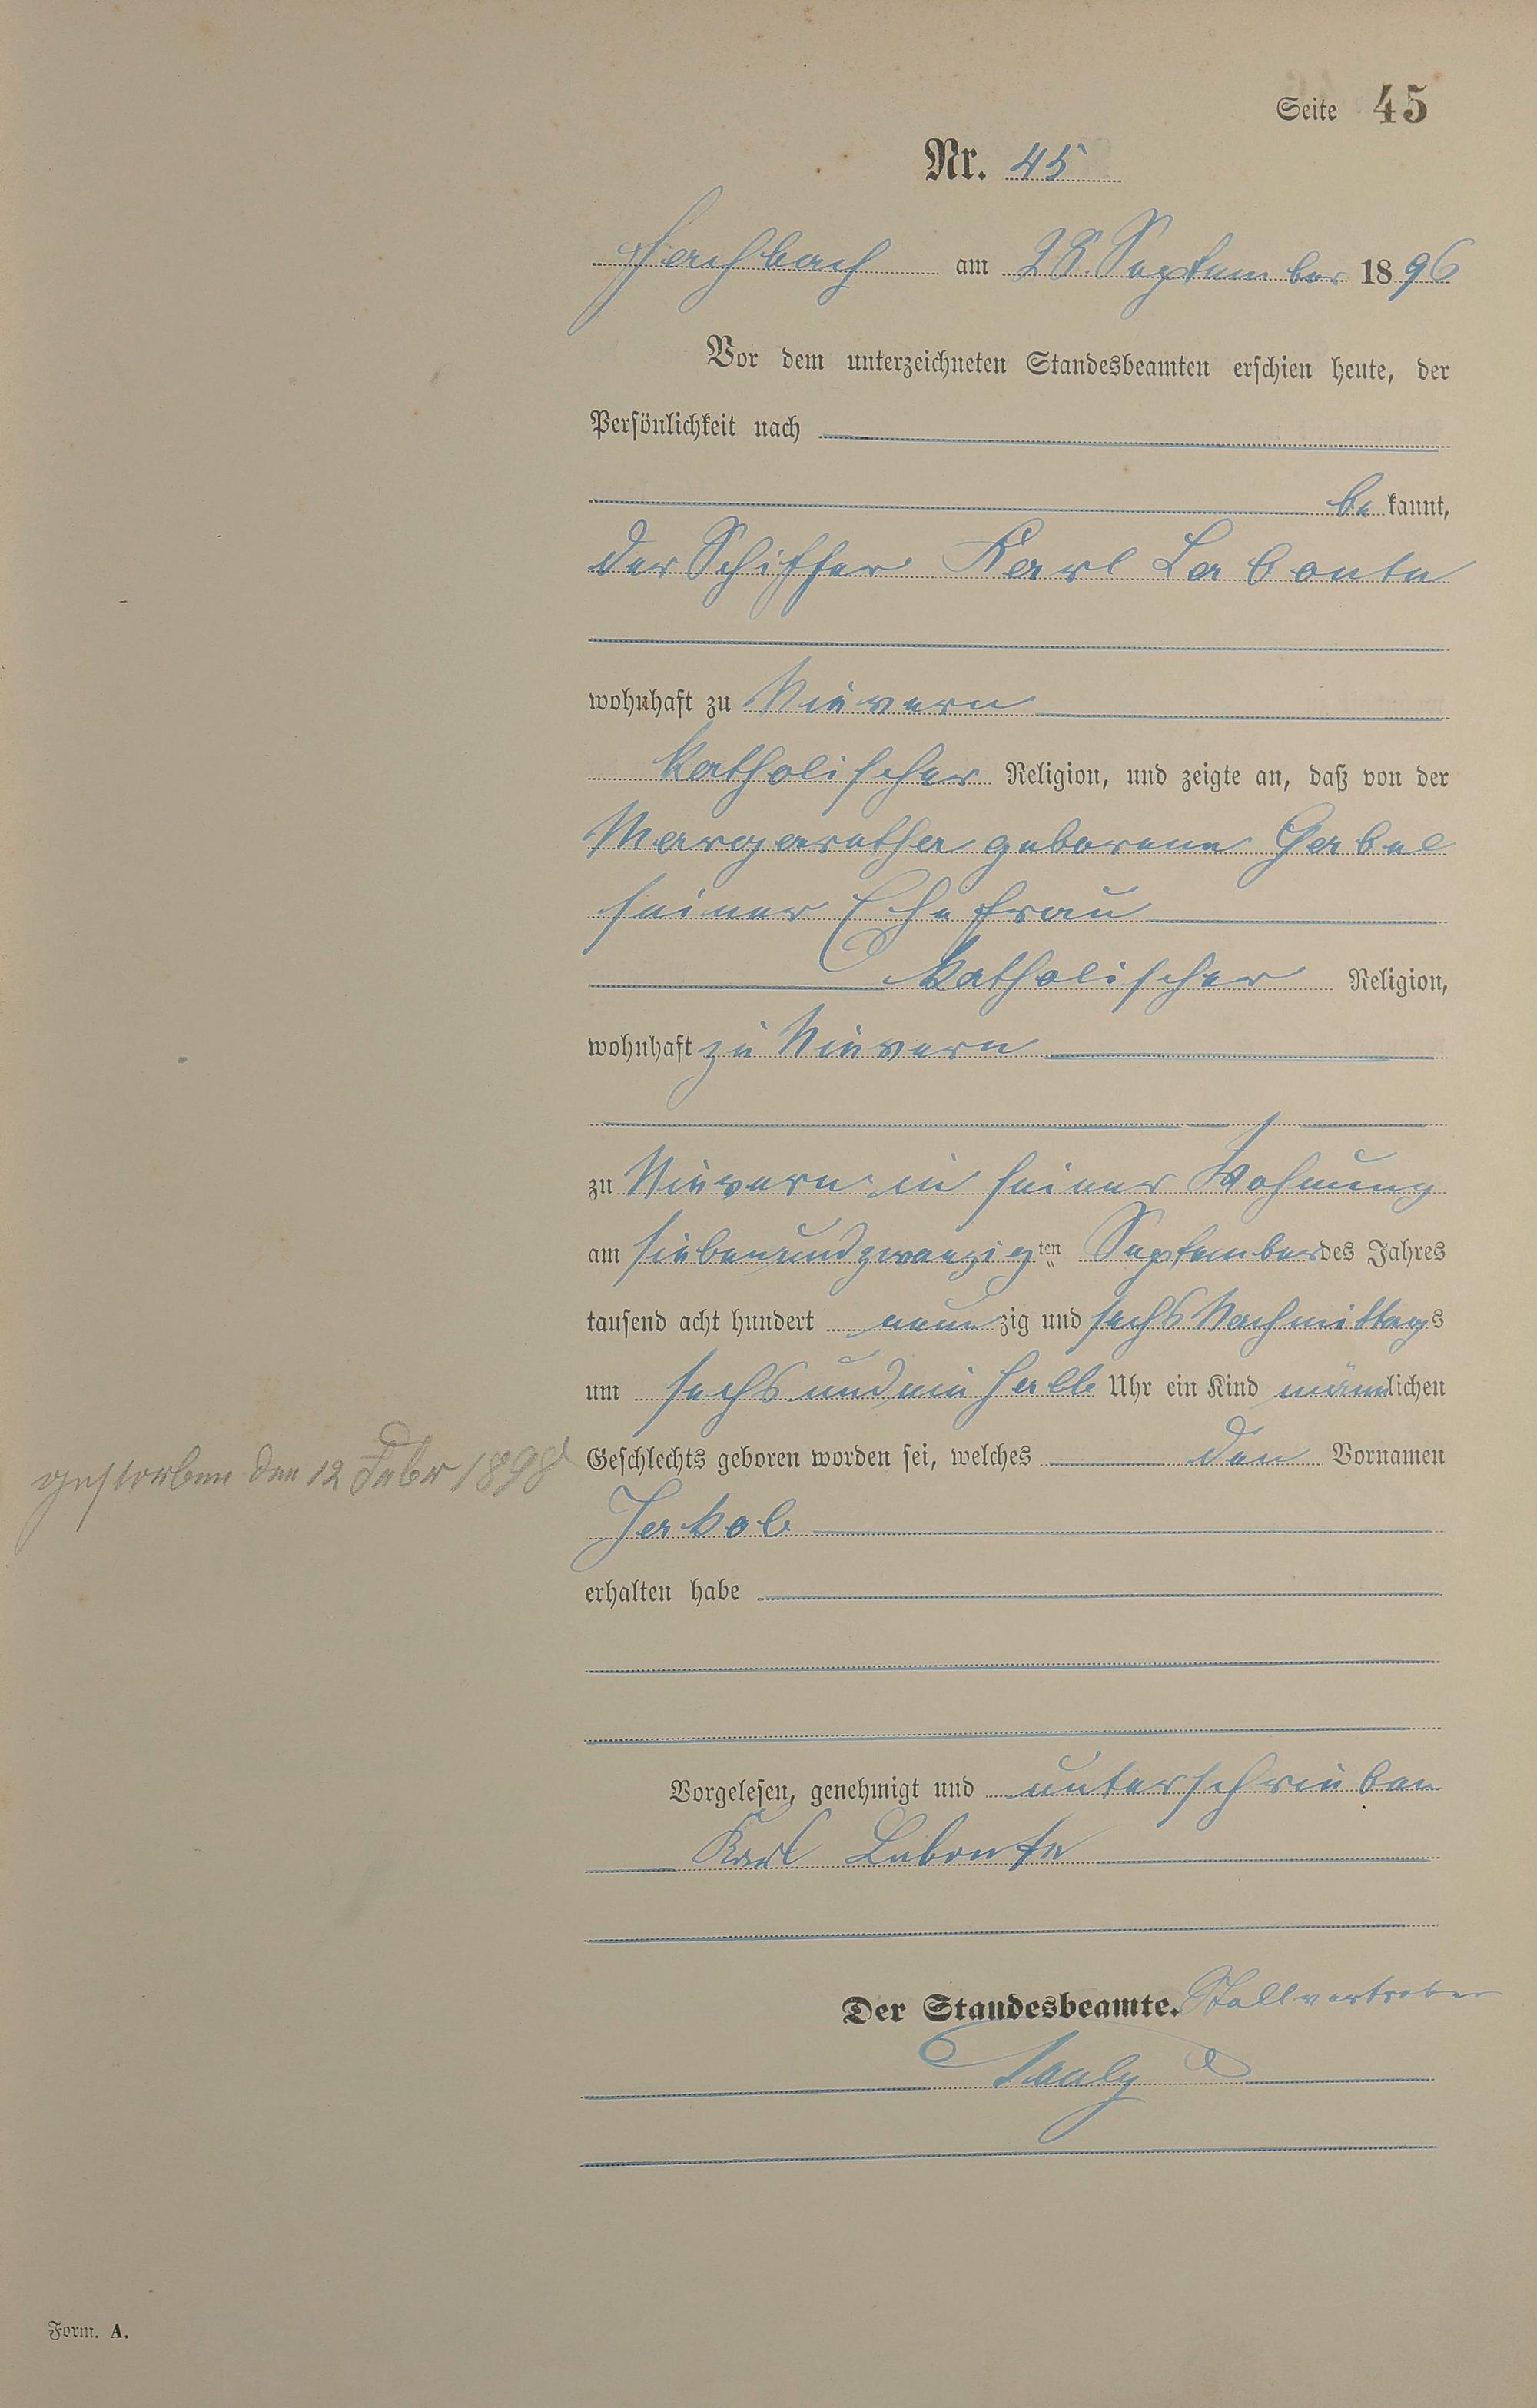 Seite 45
Nr. 45
Fachbach am 28. September 1896
Vor dem unterzeichneten Standesbeamten erschien heute, der
Persönlichkeit nach
be kannt,
der Schiffer Karl Labonte
wohnhaft zu Nievern
katholischer Religion, und zeigte an, daß von der
Margaretha geborene Gabel
seiner Ehefrau
katholischer Religion,
wohnhaft zu Nievern
zu Nievern in seiner Wohnung
am siebenundzwanzigten September des Jahres
tausend acht hundert neunzig und sechs Nachmittags
um sechs und ein halb Uhr ein Kind männlichen
Geschlechts geboren worden sei, welches den Vornamen
gestorben den 12 Febr 1898
Jakob
erhalten habe
Vorgelesen, genehmigt und unterschrieben
Karl Labonte
Der Standesbeamte. Stellvertreter
Pauly
Form. A.